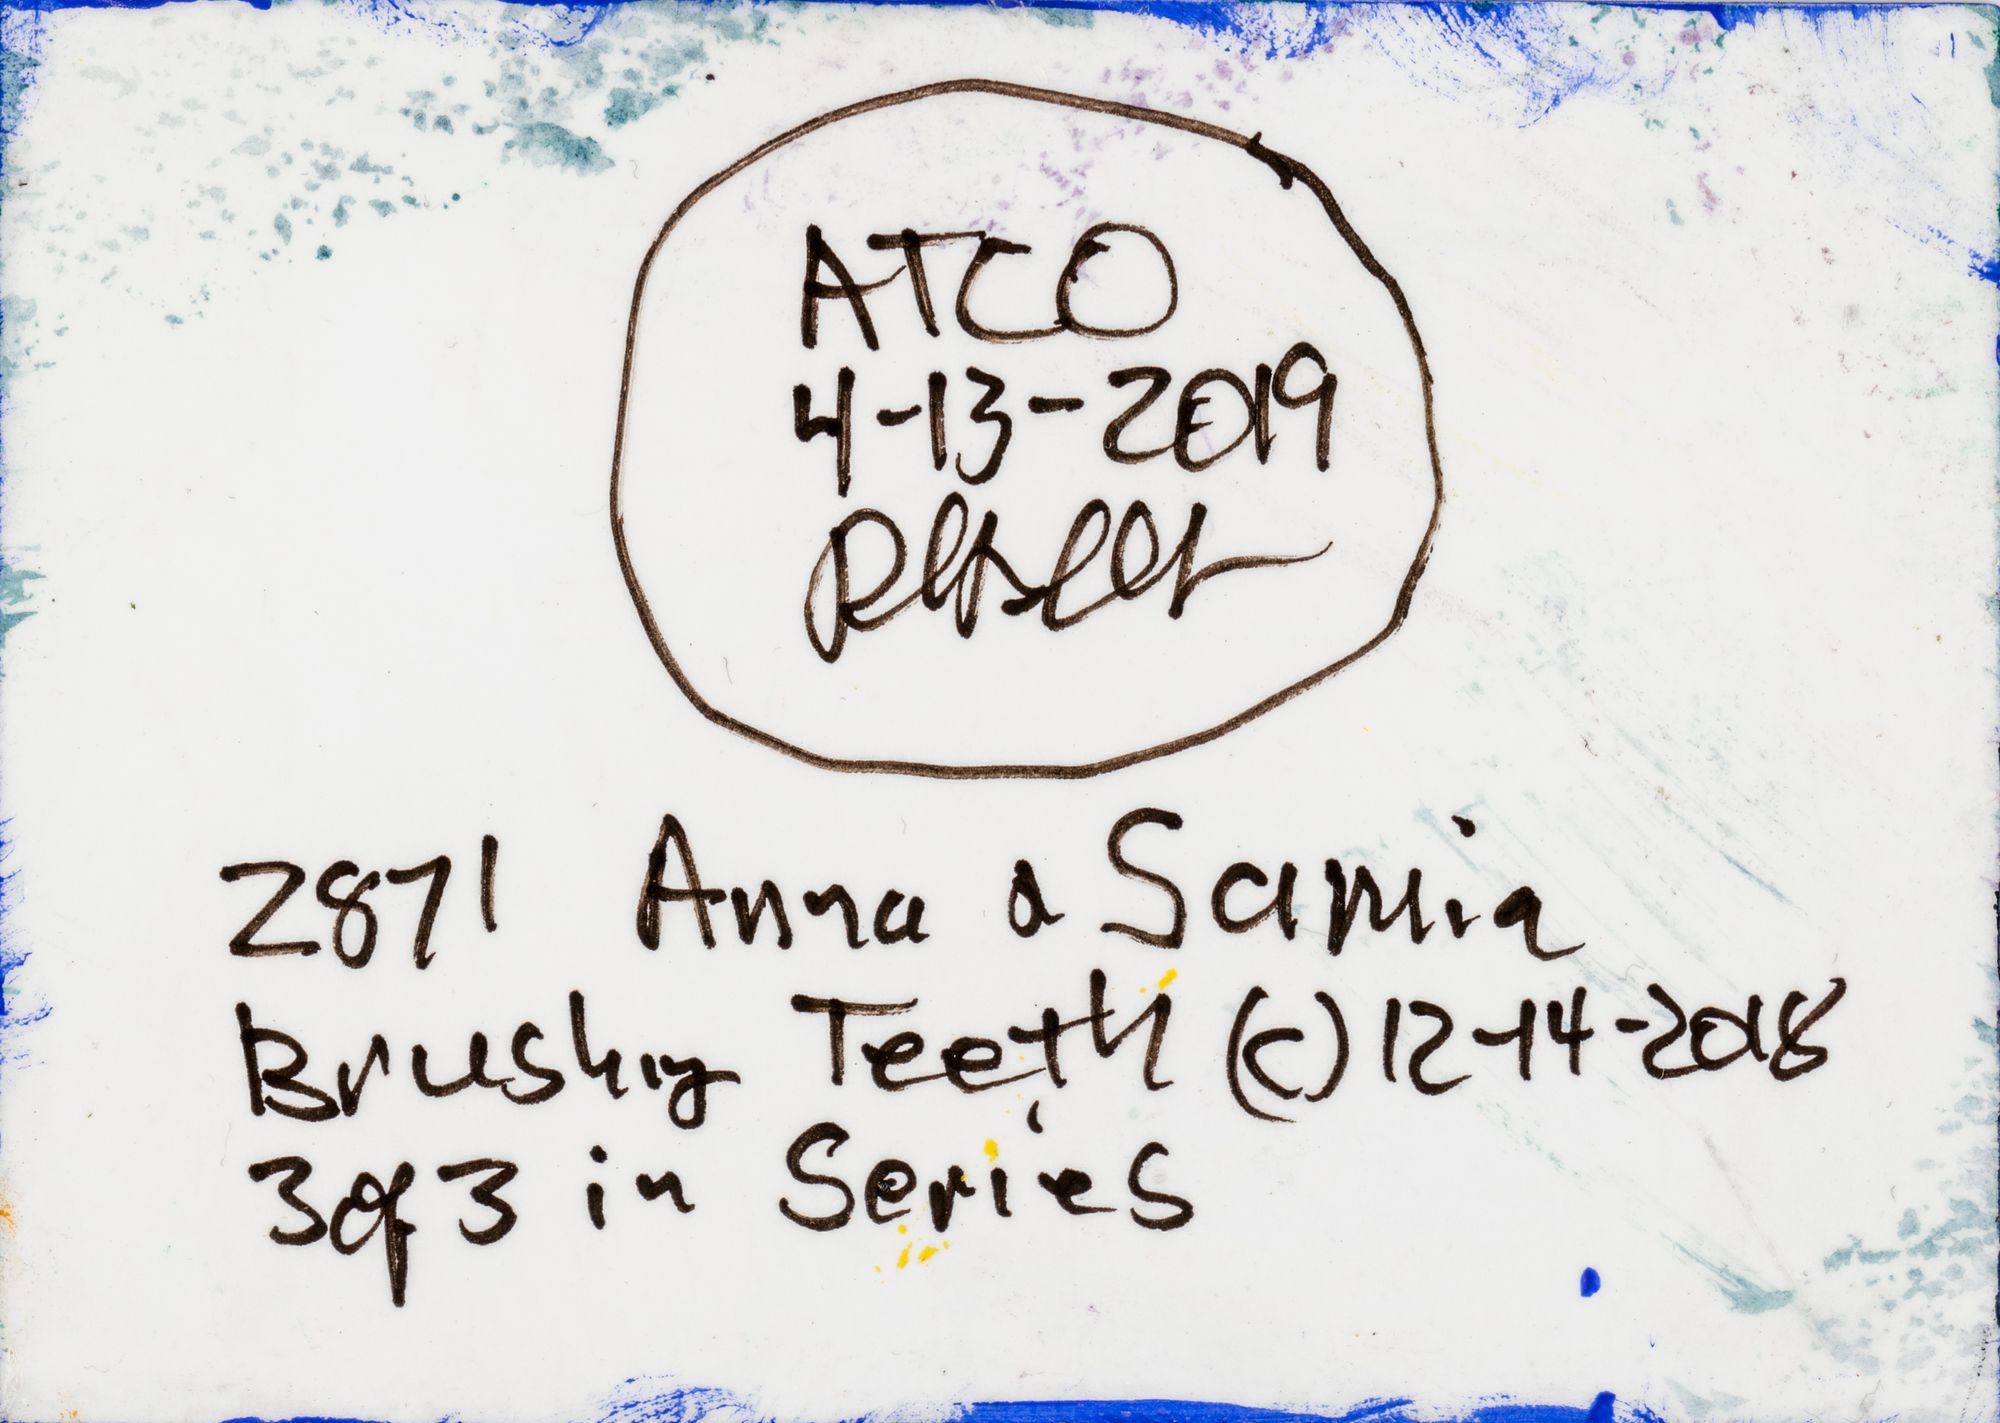 ATCO
4-13-2019
2871 Anna & Samia
Brushing Teeth (c) 12-14-2018
3 of 3 in Series